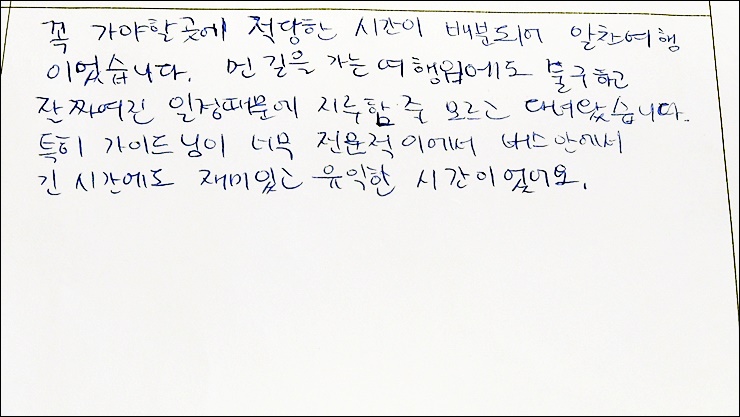 꼭 가야할곳에 적당한 시간이 배분되어 알찬여행
이었습니다. 먼길을 가는여행임에도 불구하고
잘짜여진 일정때문에 지루함줄 모르고 다녀왔습니다.
특히 가이드님이 너무 전문적이에서 버스안에서
긴시간에도 재미있는 유익한 시간이었어요.